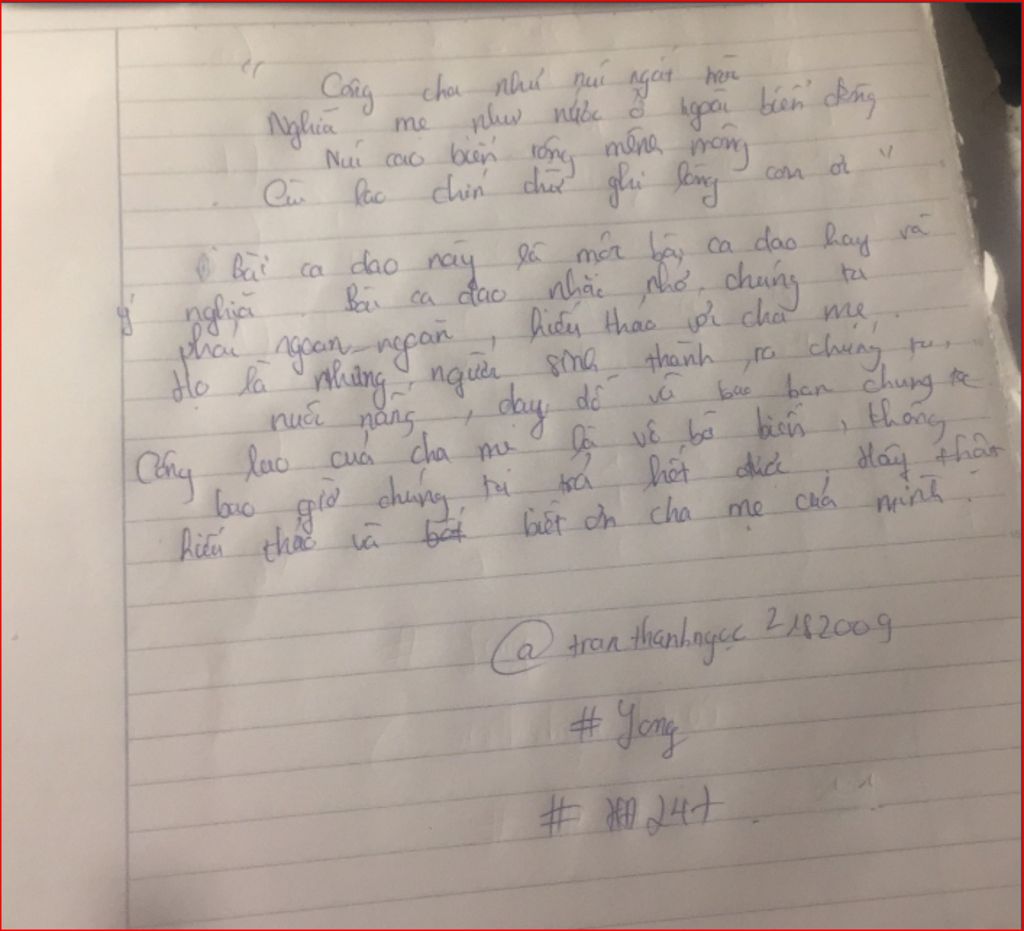 " Công cha như núi ngất trời
Nghĩa mẹ như nước ở ngoài biển đông
Núi cao biển rộng mênh mông
Cù lao chín chữ ghi lòng con ơi "
Bài ca dao này là một bài ca dao hay và
ý nghĩa. Bài ca dao nhắc nhở chúng ta
phải ngoan ngoãn, hiếu thảo với cha mẹ.
Họ là những người sinh thành ra chúng ta,
nuôi nấng, dạy dỗ và bao ban chúng ta
Công lao của cha mẹ là vô bờ bến, không
bao giờ chúng ta trả hết được. Hãy thật
hiếu thảo và biết ơn cha mẹ của mình.
@ tranthanhngọc 2182009
# Yong
# 247